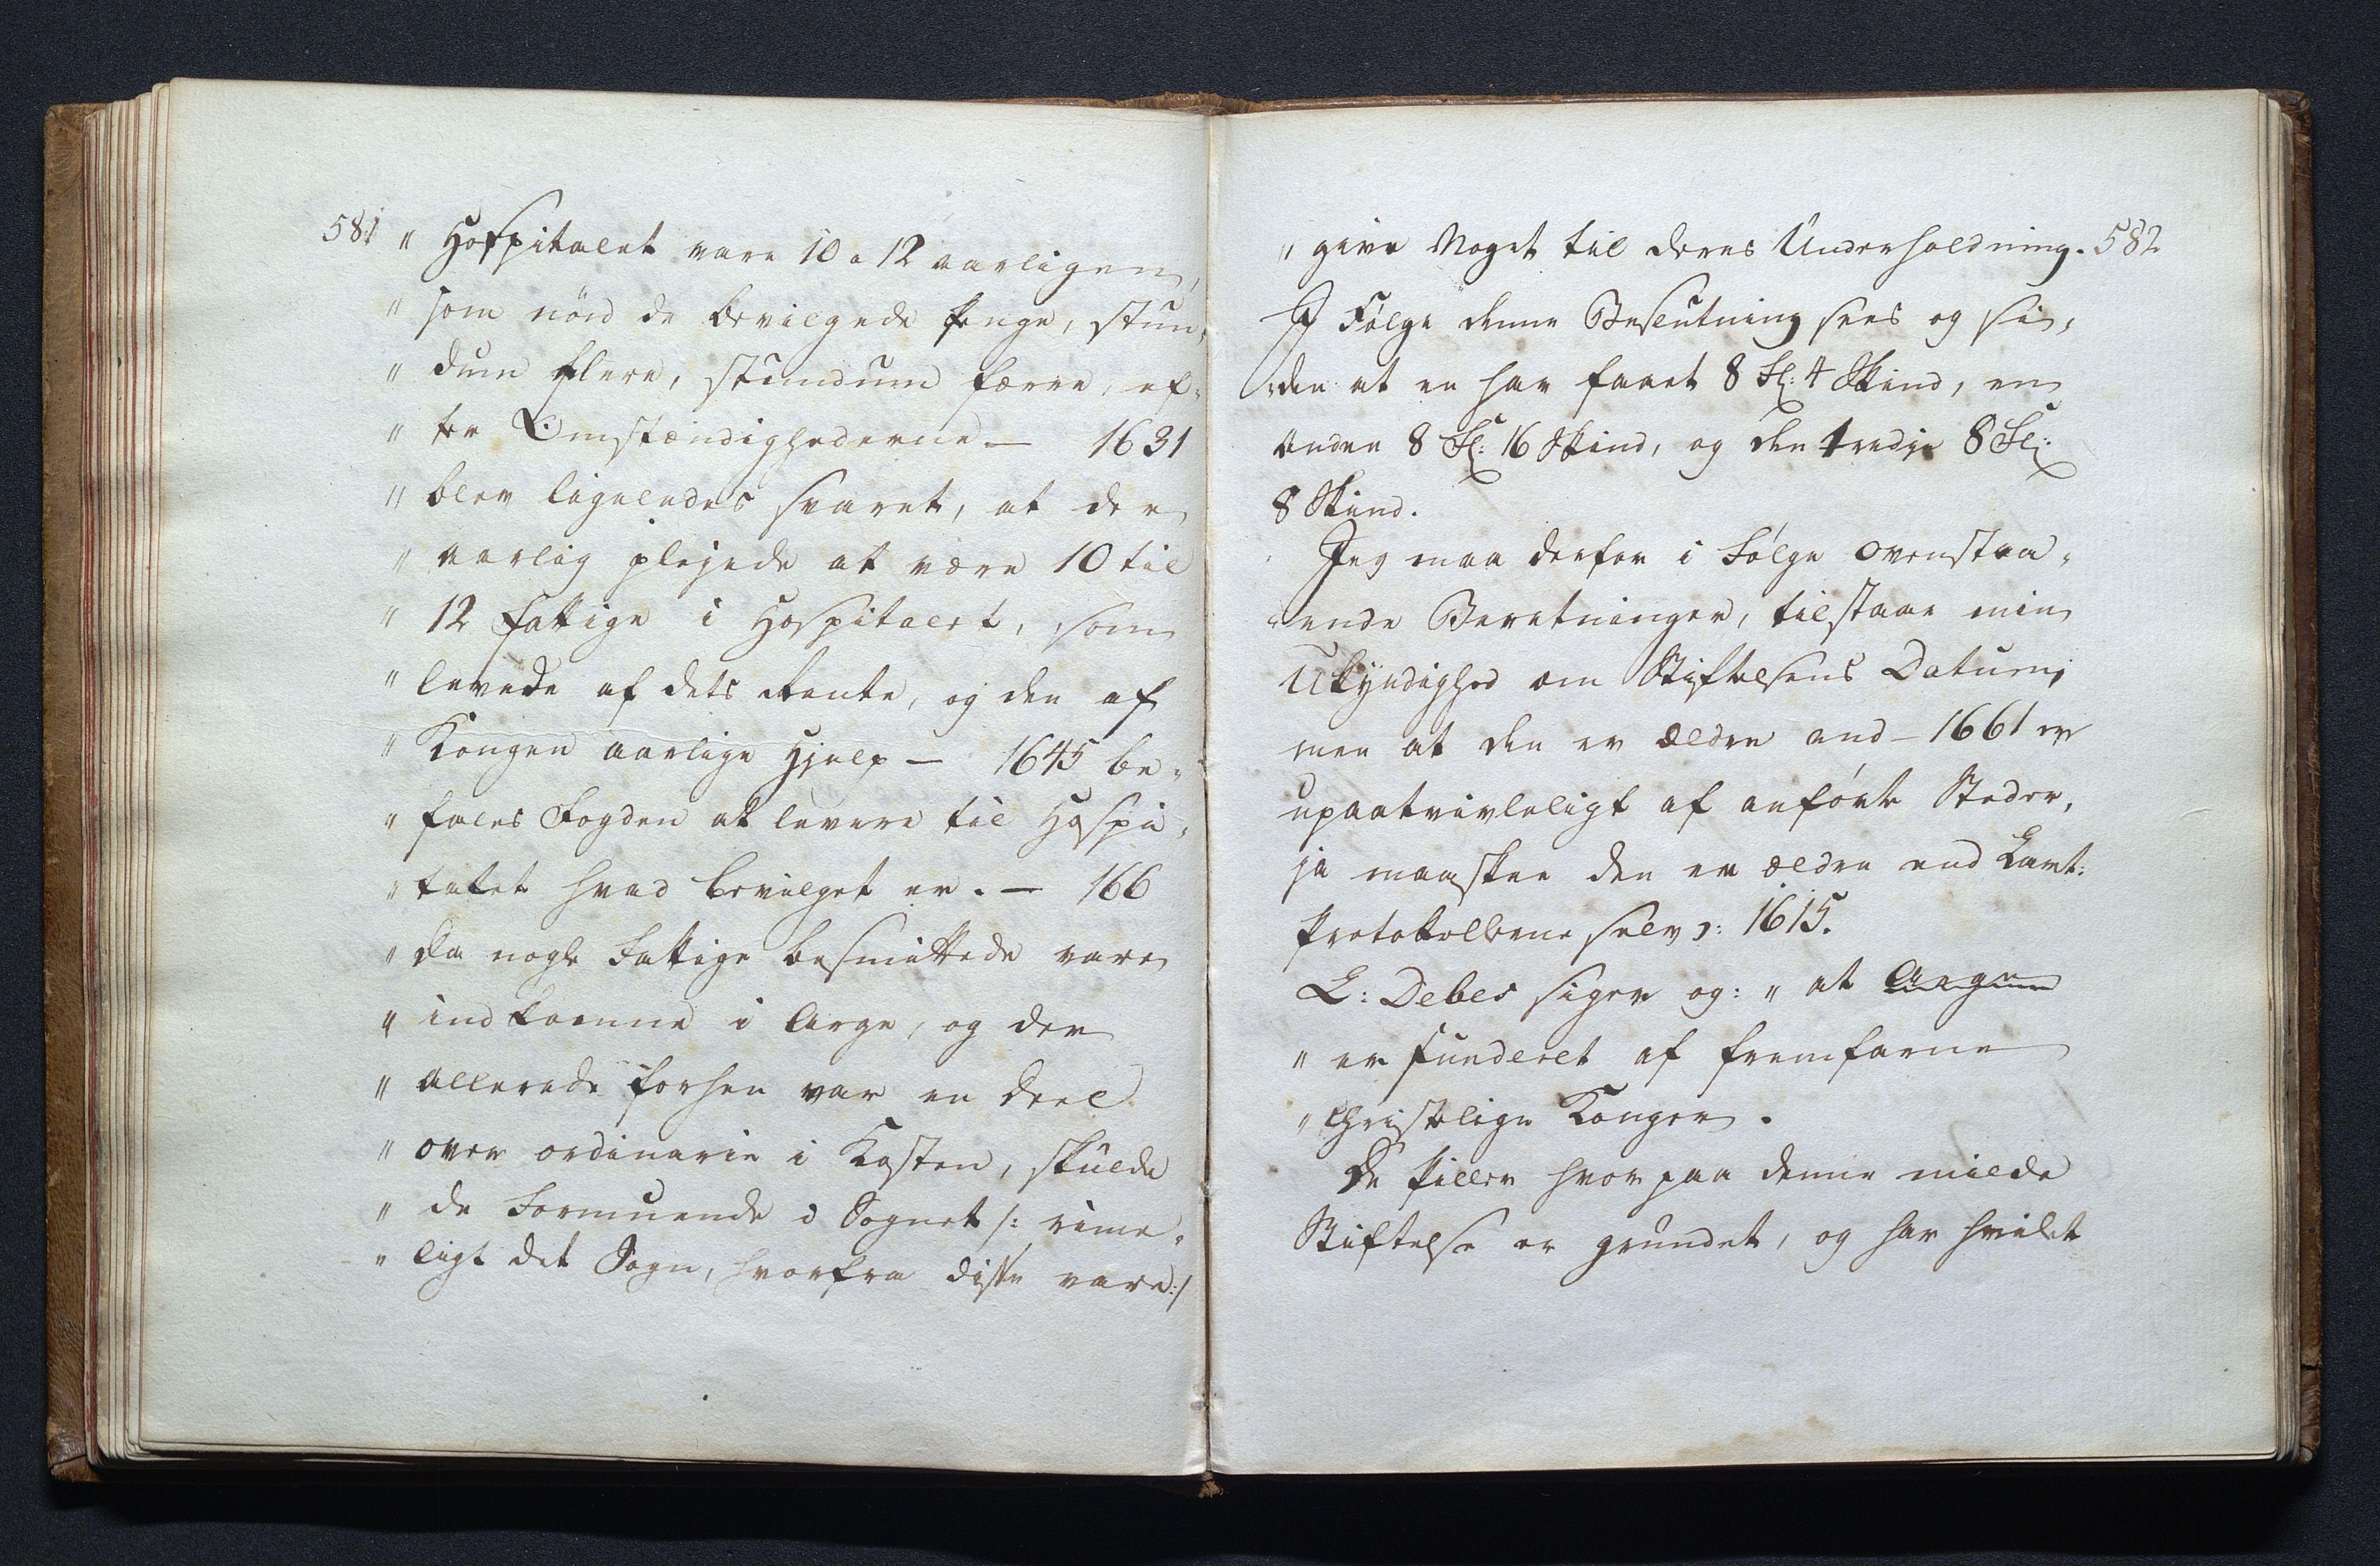 581
„ Hospitalet vare 10 a 12 aarligen,
„ som nöd de bevilgede penge, stun,
„ dum flere, stundum færre, ef,
„ ter Omstændighederne — 1631
„ blev ligeledes svaret, at der
„ aarlig plejede at være 10 til
„ 12 Fattige i Hospitalet, som
„ levede af dets Rente, og den af
„ Kongen aarlige Hjelp — 1645 be,
„ fales Fogden at levere til Hospi,
„ talet hvad bevilget er. — 166
„ da nogle Fattige besmittede vare
„ indkomne i Arge, og der
„ allerede forhen var en Deel
„ over ordinarie i Kosten, skulde
„ de Formuende i Sognet /: rime,
„ ligt det Sogn, hvorfra disse vare :/
582
„ give Noget til deres Underholdning.
I Følge denne Beslutning sees og si,
den at en har faaet 8 Fl: 4 Skind, en
anden 8 Fl: 16 Skind, og den tredje 8 Fl:
8 Skind.
Jeg maa derfor i Følge ovenstaa,
ende Beretninger, tilstaae min
Ukyndighed om Stiftelsens Datum;
men at den er ældre end — 1661 er
upaatvivleligt af anførte Steder,
ja maaskee den er ældre end Lavt:
Protokollerne selv ɔ: 1615.
L: Debes siger og: „ at Argen
„ er funderet af fremfarne
„ christelige Konger.
De Piller hvorpaa denne milde
Stiftelse er grundet, og har hvilet